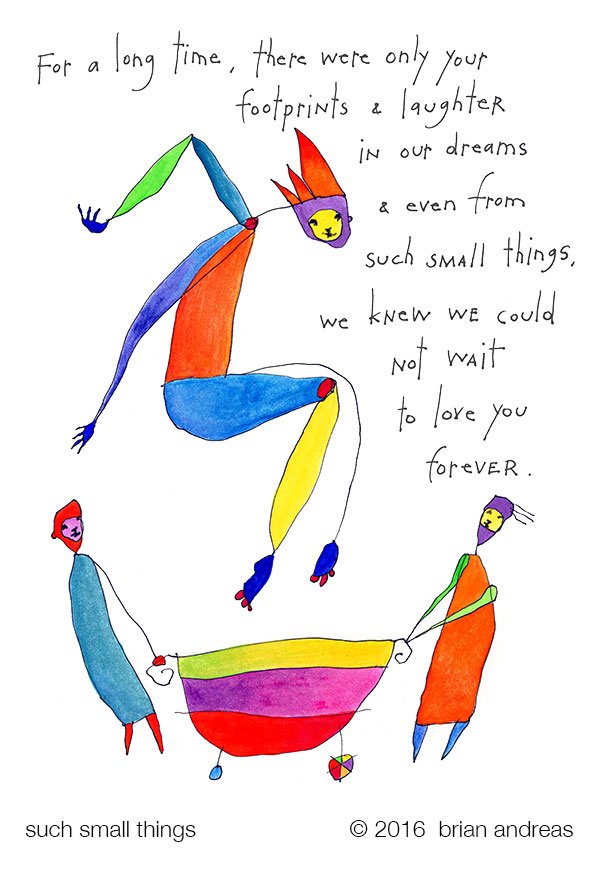 For a long time, there were only your
footprints & laughter
in our dreams
& even from
such small things,
we knew we could
not wait
to love you
forever.
such small things
© 2016 brian andreas